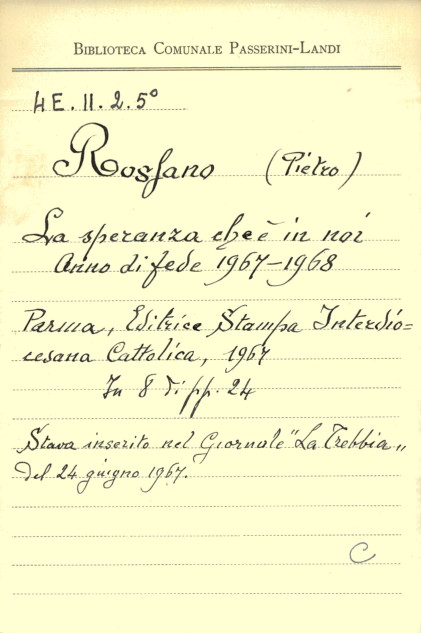 Biblioteca Comunale Passerini-Landi
4E.II.2.5°
Rossano (Pietro)
La speranza che è in noi
Anno di fede 1967-1968
Parma, Editrice Stampa Interdio=
cesana Cattolica, 1967
In 8 di pp. 24
Stava inserito nel Giornale "La Trebbia„
del 24 giugno 1967.
C